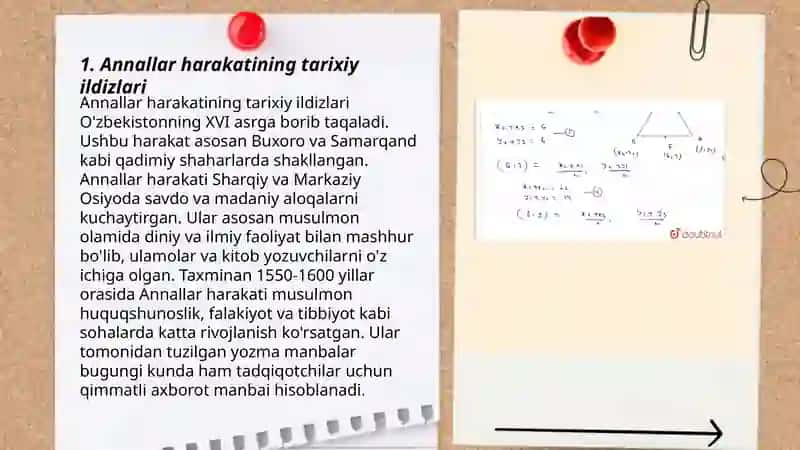 1. Annallar harakatining tarixiy
ildizlari
Annallar harakatining tarixiy ildizlari
O'zbekistonning XVI asrga borib taqaladi.
Ushbu harakat asosan Buxoro va Samarqand
kabi qadimiy shaharlarda shakllangan.
Annallar harakati Sharqiy va Markaziy
Osiyoda savdo va madaniy aloqalarni
kuchaytirgan. Ular asosan musulmon
olamida diniy va ilmiy faoliyat bilan mashhur
bo'lib, ulamolar va kitob yozuvchilarni o'z
ichiga olgan. Taxminan 1550-1600 yillar
orasida Annallar harakati musulmon
huquqshunoslik, falakiyot va tibbiyot kabi
sohalarda katta rivojlanish ko'rsatgan. Ular
tomonidan tuzilgan yozma manbalar
bugungi kunda ham tadqiqotchilar uchun
qimmatli axborot manbai hisoblanadi.
doubtnut